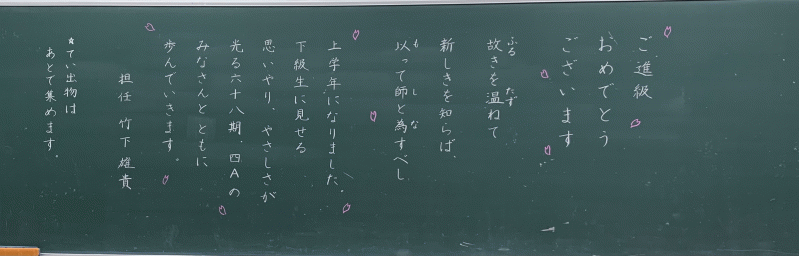 ご進級
おめでとう
ございます
故きを温ねて
ふる
たず
新しきを知らば、
以って師と為すべし
も
し
な
上学年になりました。
下級生に見せる
思いやり、やさしさが
光る六十八期、四Aの
みなさんとともに
歩んでいきます。
担任 竹下雄貴
☆てい出物は
あとで集めます。